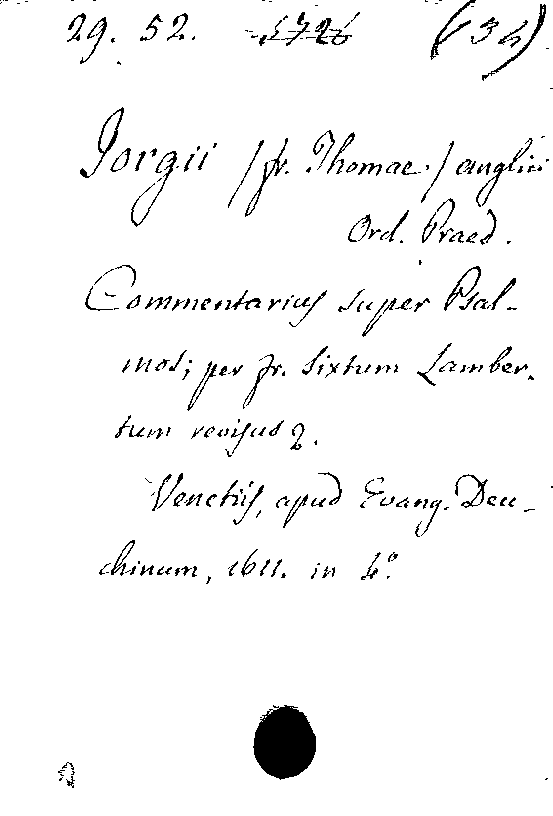 29. 52. 5726 (34)
Jorgii /fr. Thomae/ anglici
Ord. Praed.
Commentarius super Psal-
mos; per fr. Sixtum Lamber-
tum revisus
Venetiis, apud Evang. Deu-
chinum, 1611. in 4°.